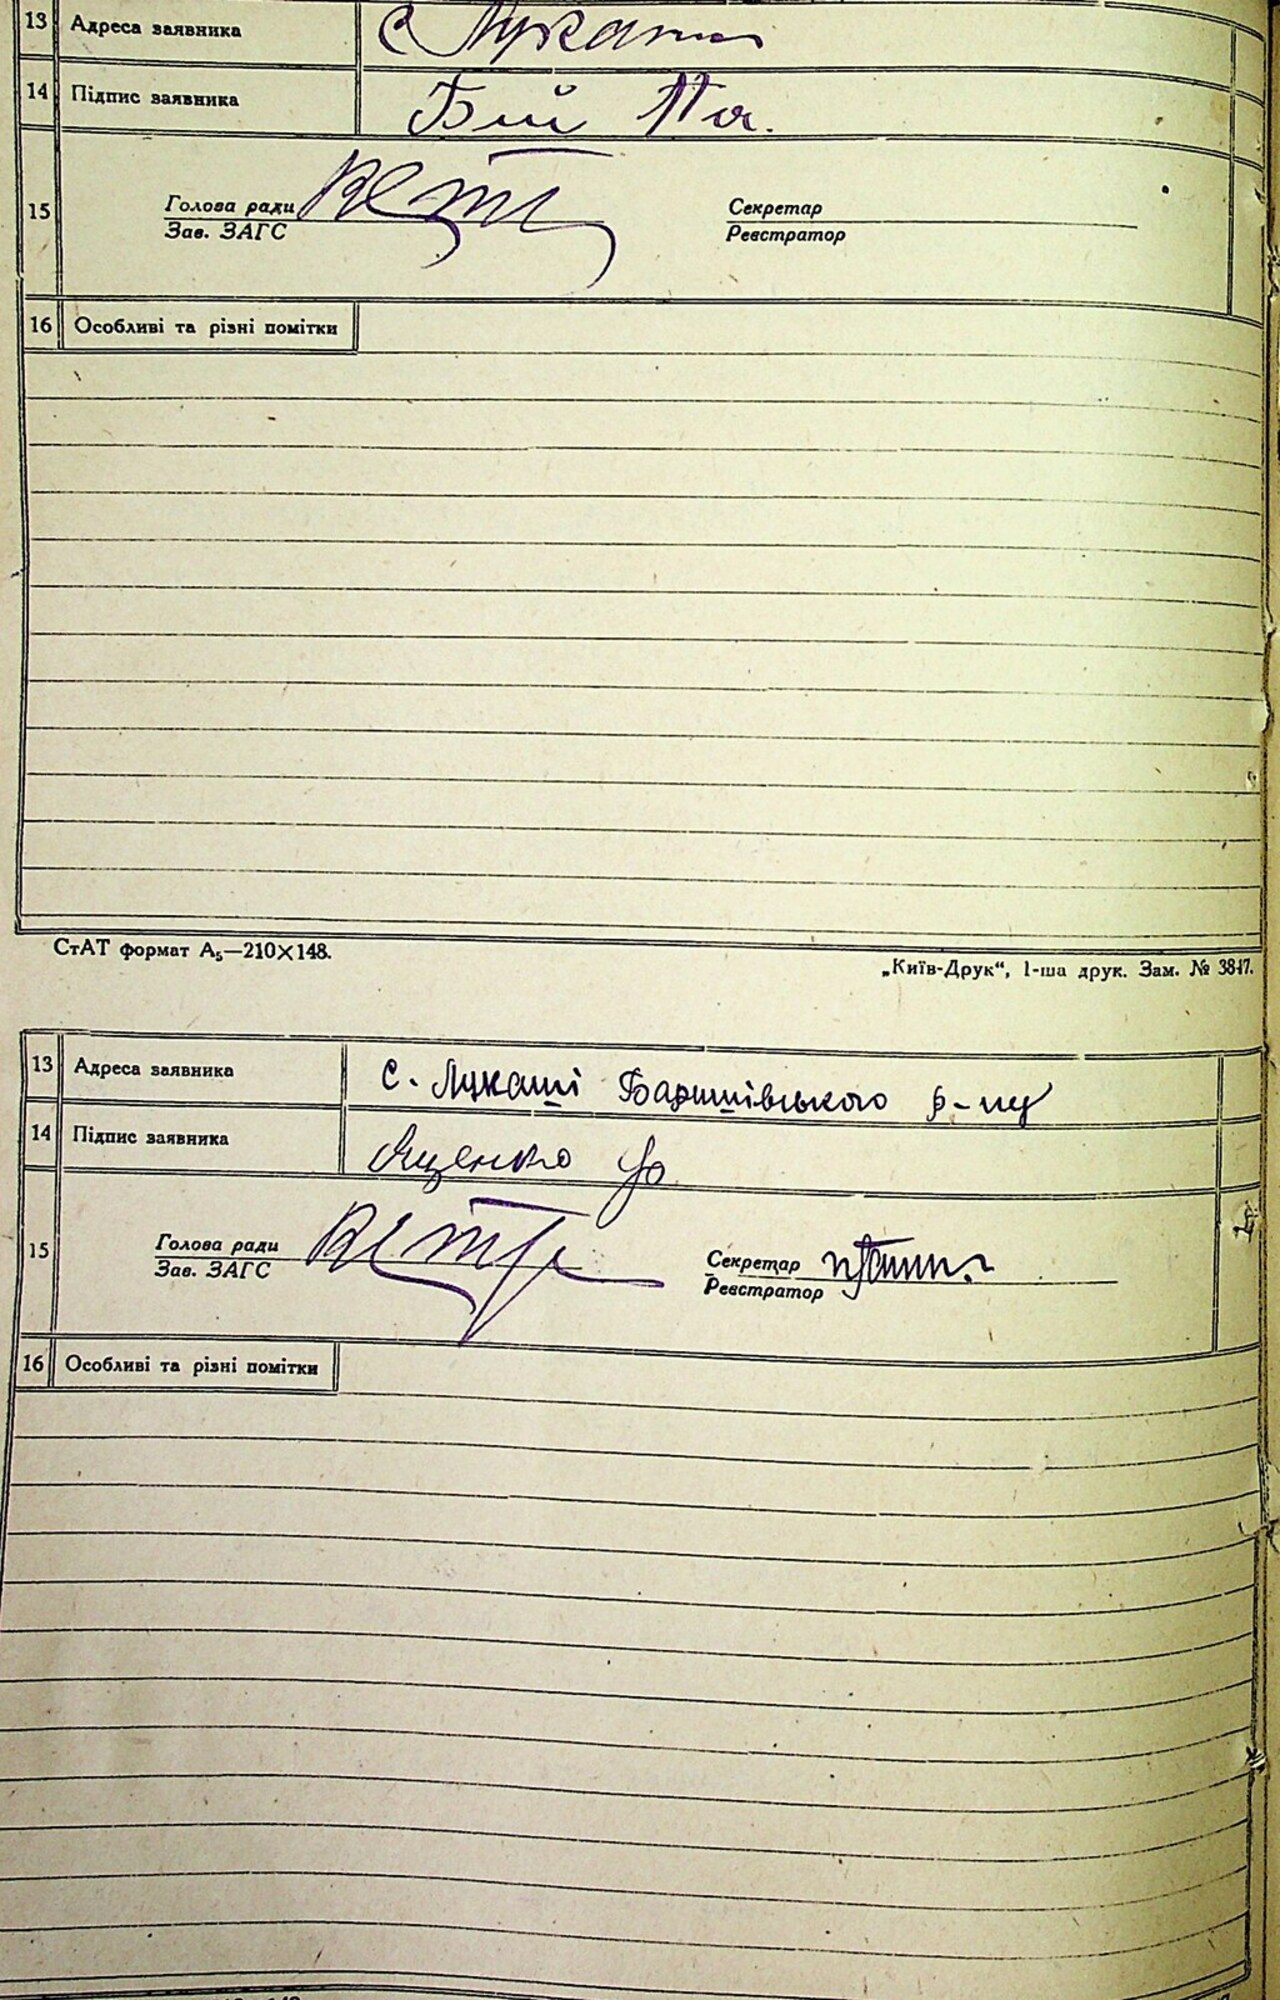 13 Адреса заявника с Лукаші
14 Підпис заявника Бий
15 Голова ради Секретар
Зав. ЗАГС Реєстратор
16 Особливі та різні помітки
СтАТ формат А₅—210×148.
„Київ-Друк“, 1-ша друк. Зам. № 3847.
13 Адреса заявника с. Лукаші Баришівського р-ну
14 Підпис заявника Яценко
15 Голова ради Секретар
Зав. ЗАГС Реєстратор
16 Особливі та різні помітки